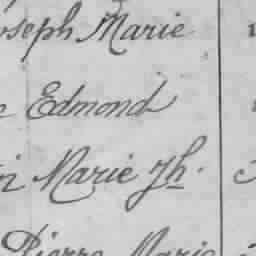 oseph Marie
Edmond
Marie Jh.
Pierre Marie